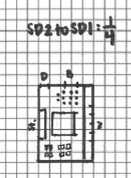 SD2 to SD1: 1/4
D B
St.